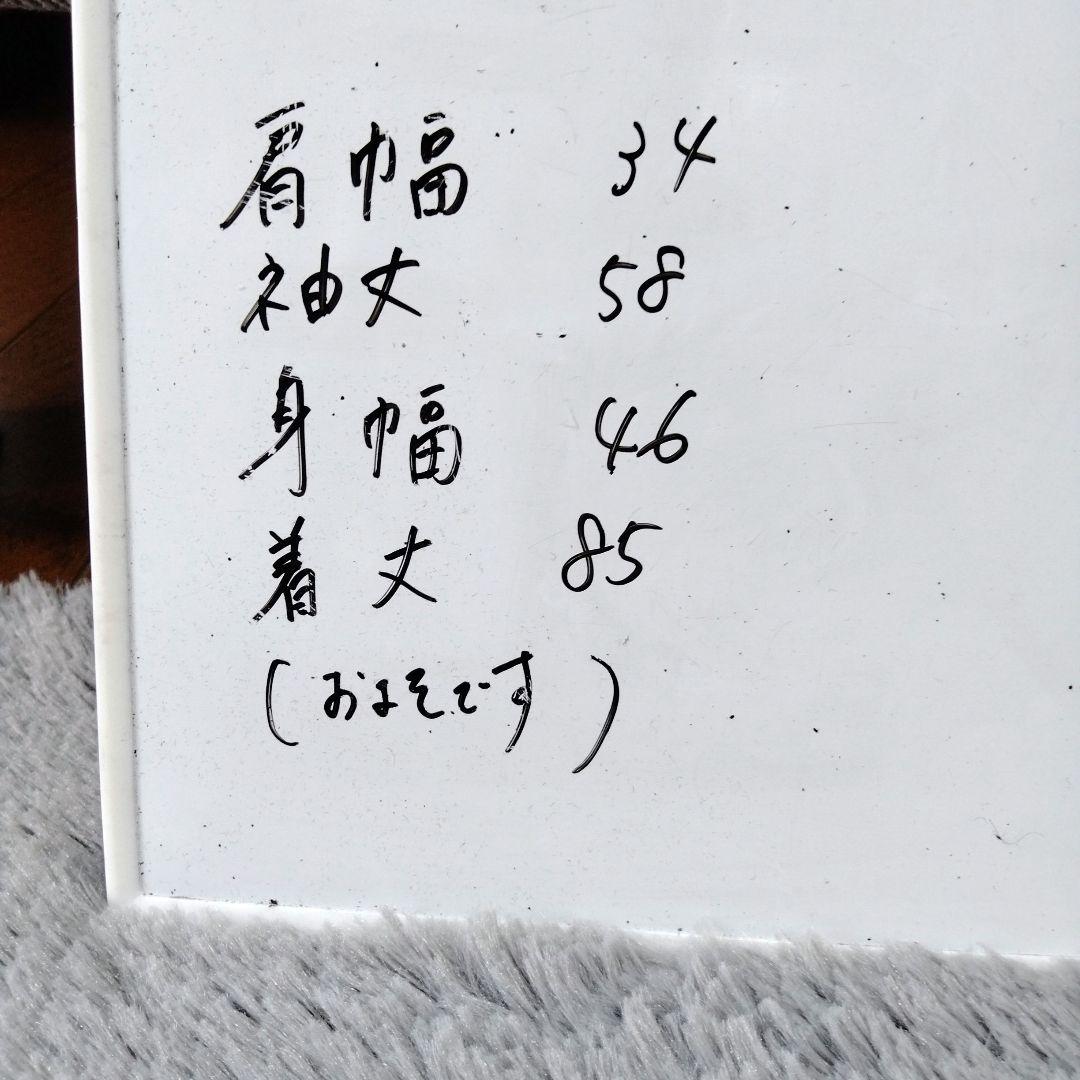 肩幅 34
袖丈 58
身幅 46
着丈 85
(およそです)